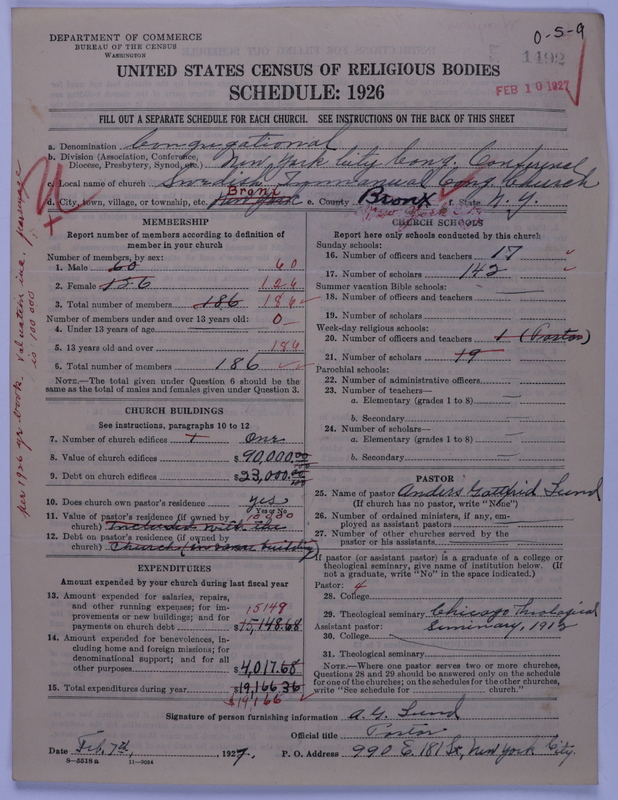 DEPARTMENT OF COMMERCE
BUREAU OF THE CENSUS
WASHINGTON
0-5-9
1492
FEB 10 1927
UNITED STATES CENSUS OF RELIGIOUS BODIES
SCHEDULE: 1926
FILL OUT A SEPARATE SCHEDULE FOR EACH CHURCH. SEE INSTRUCTIONS ON THE BACK OF THIS SHEET
a. Denomination Congregational
b. Division (Association, Conference, Diocese, Presbytery, Synod, etc.) New York City Cong. Conference
c. Local name of church Swedish Immanuel Cong. Church
d. City, town, village, or township, etc. New York Bronx e. County Bronx f. State N. Y.
per 1926 yr. book valuation inc. parsonage is 100 000
MEMBERSHIP
Report number of members according to definition of member in your church
Number of members by sex:
1. Male 60 60
2. Female 126 126
3. Total number of members 186 186
Number of members under and over 13 years old:
4. Under 13 years of age 0
5. 13 years old and over 186
6. Total number of members 186
NOTE.—The total given under Question 6 should be the same as the total of males and females given under Question 3.
CHURCH BUILDINGS
See instructions, paragraphs 10 to 12
7. Number of church edifices 1 One
8. Value of church edifices $90,000.00
9. Debt on church edifices $23,000.00
10. Does church own pastor's residence yes
Yes or No
11. Value of pastor's residence (if owned by church) Included with the
12. Debt on pastor's residence (if owned by church) Church (in same building)
EXPENDITURES
Amount expended by your church during last fiscal year
13. Amount expended for salaries, repairs, and other running expenses; for improvements or new buildings; and for payments on church debt 15149 $15,148.68
14. Amount expended for benevolences, including home and foreign missions; for denominational support; and for all other purposes $4,017.68
15. Total expenditures during year $19,166.36
$19,166
CHURCH SCHOOLS
Report here only schools conducted by this church
Sunday schools:
16. Number of officers and teachers 17
17. Number of scholars 142
Summer vacation Bible schools:
18. Number of officers and teachers
19. Number of scholars
Week-day religious schools:
20. Number of officers and teachers 1 (Pastor)
21. Number of scholars 19
Parochial schools:
22. Number of administrative officers
23. Number of teachers—
a. Elementary (grades 1 to 8)
b. Secondary
24. Number of scholars—
a. Elementary (grades 1 to 8)
b. Secondary
PASTOR
25. Name of pastor Anders Gottfrid Lund
(If church has no pastor, write "None")
26. Number of ordained ministers, if any, employed as assistant pastors
27. Number of other churches served by the pastor or his assistants
If pastor (or assistant pastor) is a graduate of a college or theological seminary, give name of institution below. (If not a graduate, write "No" in the space indicated.)
Pastor: 4
28. College
29. Theological seminary Chicago Theological
Assistant pastor: Seminary, 1912
30. College
31. Theological seminary
NOTE.—Where one pastor serves two or more churches, Questions 28 and 29 should be answered only on the schedule for one of the churches; on the schedules for the other churches, write "See schedule for church."
Signature of person furnishing information A. G. Lund
Official title Pastor
Date Feb. 7th, 1927. P. O. Address 990 E. 181 St., New York City.
8—5518a 11—9034